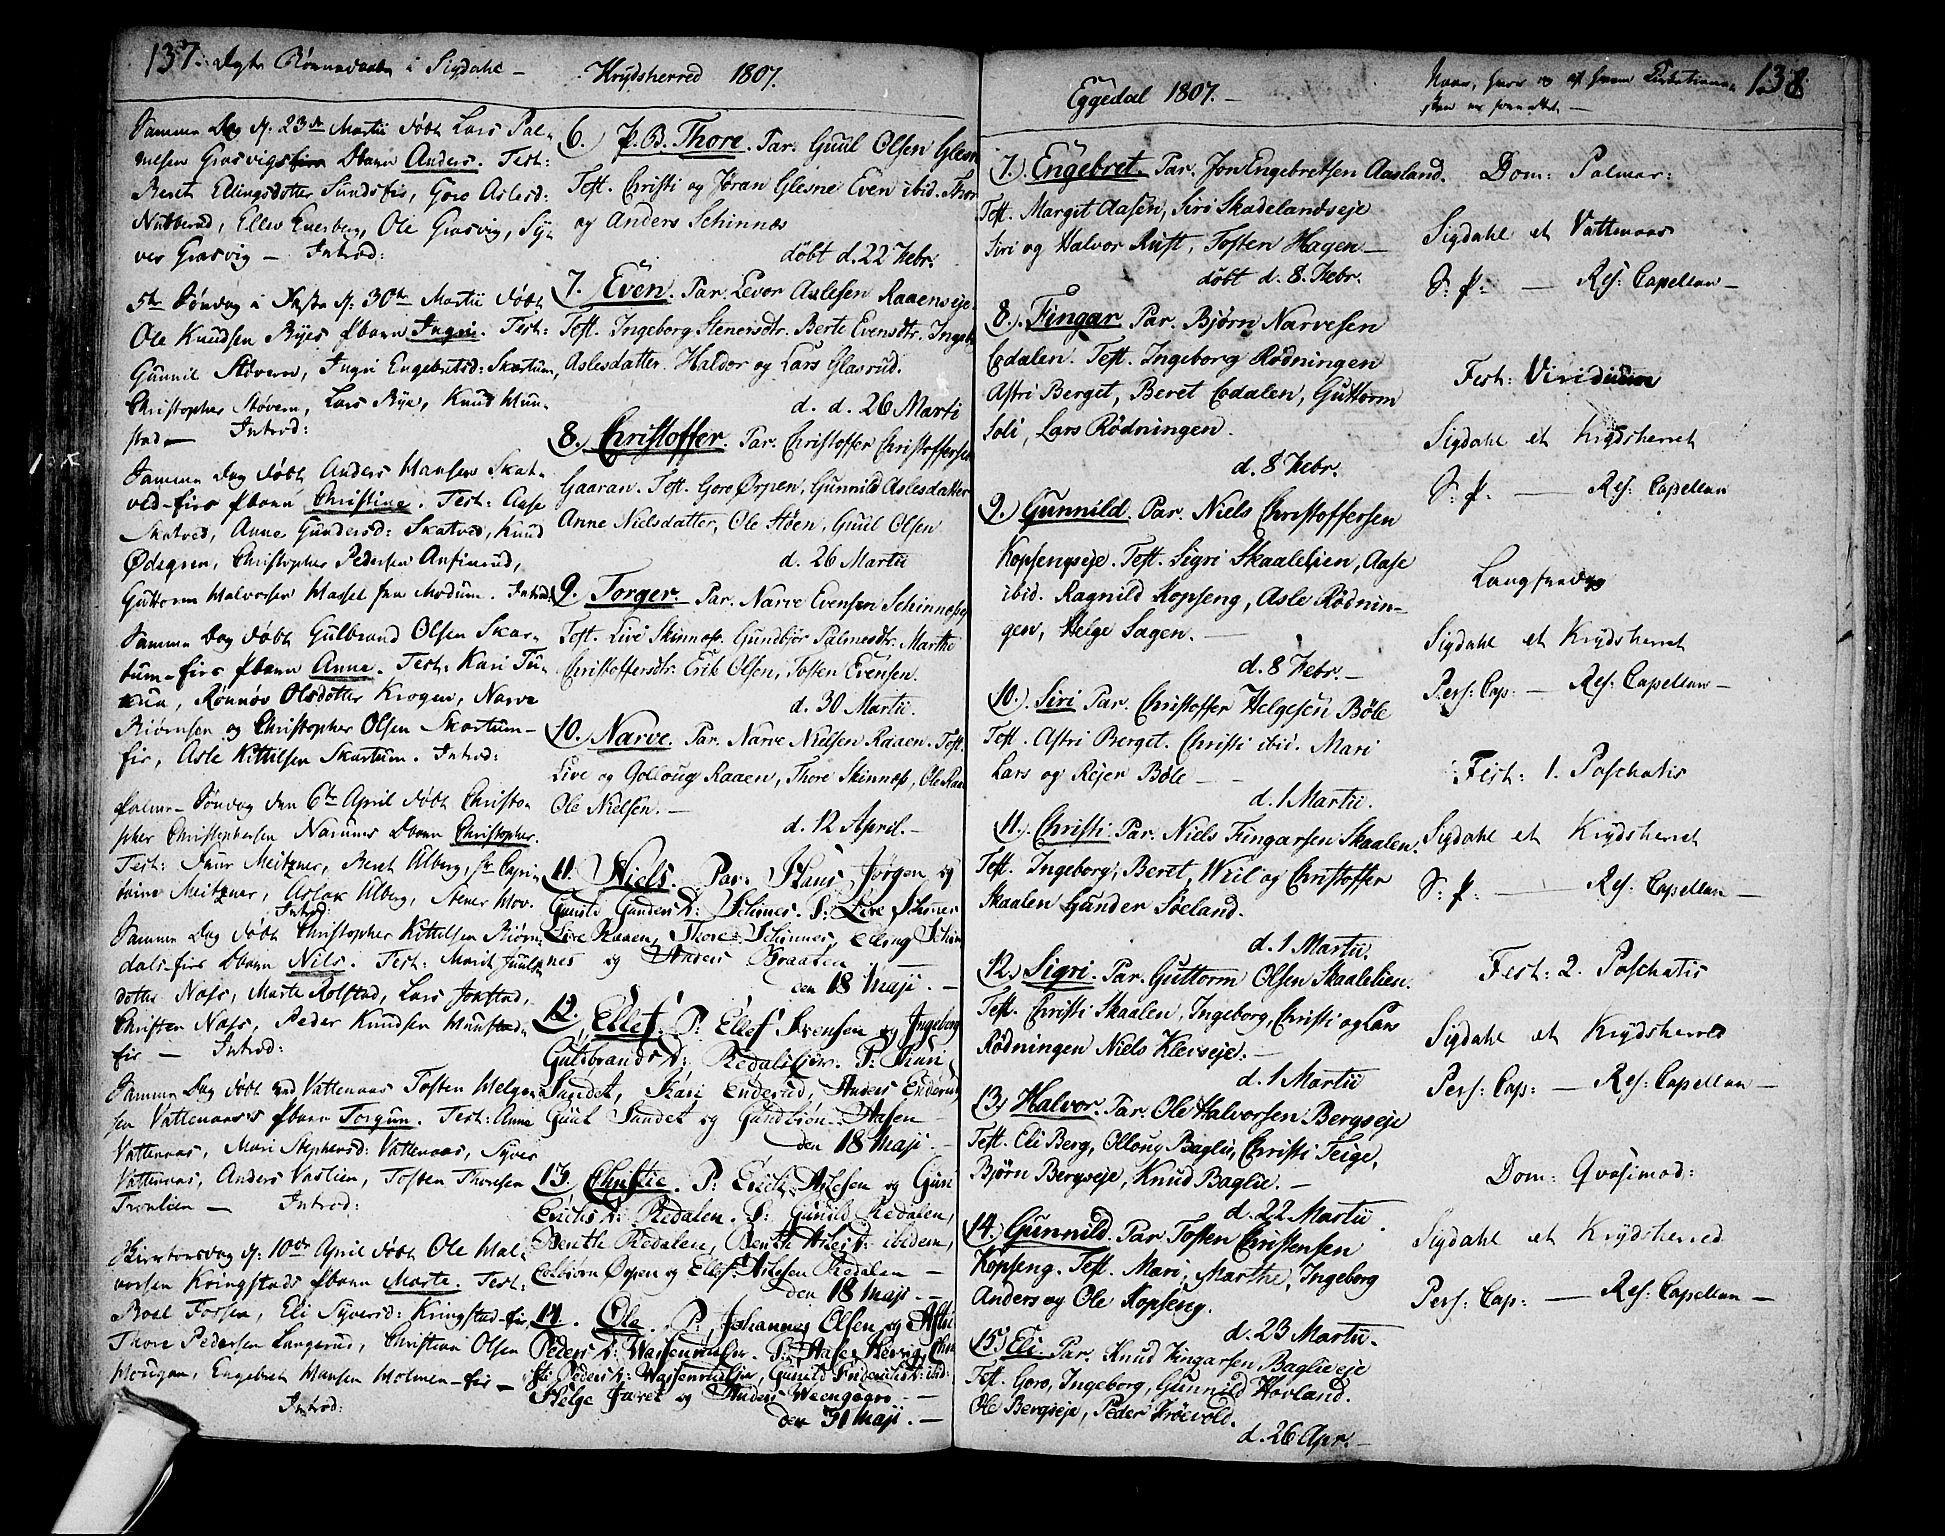 137. Døpte Rønnevaabn i Sigdahl –
Samme Dag d. 23de Martii døbt Lars Pal-
mesen Grasvigs Dbarn Anders. Test:
Beret Ellingsdotter Sundsfir, Goro Aslesd:
Nubberud, Ellev Enerberg, Ole Grasvig, Sy-
ver Grasvig – Introd:
5te Søndag i Faste d. 30te Martii døbt
Ole Knudsen Ryes Pbarn Ingri. Test:
Gunnil Støvern, Ingri Engebretsd: Skartum,
Christopher Støvern, Lars Rye, Knud Mun-
stad – Introd:
Samme Dag døbt Anders Hansen Skat-
ved-firs Pbarn Christine. Test: Aase
Skatved, Anne Gundersd: Skatved, Knud
Ødegren, Christopher Pedersen Anfinrud,
Guttorm Halvorsen Hassel fra Modum. Introd:
Samme Dag døbt Gulbrand Olsen Skar-
tum-firs Pbarn Anne. Test: Kari
Rønnøv Olsdotter Krogen, Narve
Biørnsen og Christopher Olsen Skartum-
fir, Asle Kittilsen Skartum. Introd:
Palme-Søndag den 6te April døbt Christo-
pher Christophersen Narums Dbarn Christopher.
Test: Meitzner, Beret Ulberg, Hr Capi-
taine Meitzner, Aslak Ulberg, Stener Mov.
Introd:
Samme Dag døbt Christopher Kittilsen Biørn-
dals-firs Dbarn Nils. Test: Marit Juuls-
dotter Nass, Marte Rolstad, Lars Jonstad,
Christen Nass, Peder Knudsen Munstad-
fir – Introd:
Samme Dag døbt ved Vattenaas Tosten Helge-
sen Vattenaas's Pbarn Torgun. Test: Anne
Vattenaas, Mari Stephensd: Vattenaas, Syver
Vattenaas, Anders Vastlien, Tosten Thoresen
Tronlien – Introd:
Skiertorsdag d. 10de April døbt Ole Hal-
vorsen Kringstads Pbarn Marte. Test:
Boel Fossen, Eli Syversd: Kringstad-fir,
Thore Pedersen Langerud, Christian Olsen
Moviggen, Engebret Hansen Holmen-fir –
Introd:
Krydsherred 1807.
6.) P. B. Thore. Par: Guul Olsen Glesn
Test. Christi og Jøran Glesne Even ibid. Thor
og Anders Schinnes
døbt d. 22 Febr.
7. Even. Par. Levor Aslesen Raaenseje.
Test. Ingeborg Stenersdtr. Berte Evensdtr. Ingeb
Aslesdatter. Haldor og Lars Glasrud.
d. d. 26 Marti
8. Christoffer. Par. Christoffer Christoffersen
Gaaran. Test. Goro Ørpen, Gunnild Aslesdatter
Anne Nielsdatter, Ole Støen. Guul Olsen
d. 26 Martii
9. Torger. Par. Narve Evensen Schinnesej
Test. Live Skinnes. Gundbjør Palmesdtr. Marthe
Christoffersdtr. Erik Olsen, Tosten Evensen.
d. 30 Martii.
10. Narve. Par. Narve Nielsen Raaen. Test.
Live og Golloug Raaen, Thore Skinnes, Ole Raa
Ole Nielsen. –
d. 12 April. –
11. Niels Par: Hans Jørgen og
Gunild Gunders D: Schinnes. T: Live Schinnes
Live Raaen, Thore Schinnes, Elling Schin
nes og Anders Braaten –
den 18 Maji. –
12. Ellef. P: Ellef Svensen og Ingeborg
Gulbrands D: Redalsejer. T: Kari
Sandet, Kari Enderud, Anders Enderud
Guul Sandet og Gundbiøn Aasen
den 18 Maji –
13. Christie. P: Erich Aslesen og Guri
Erichs D: Redalen. T: Gunild Redalen,
Benthe Redalen, Benthe Asles D: ibidem,
Colbiørn Ørpen og Ellef Aslesen Redalen –
den 18 Maji. –
14. Ole. P: Johannes Olsen og Astri
Peders D: Wassenrudejer. T: Aase Hervig, Chri
sti Peders D: Wassenrudejer, Gunild Friderichs D: ibid.
Helge Faret og Anders Weengagro. –
den 31 Maji. –
Eggedal 1807. –
7.) Engebret. Par. Jon Engebretsen Aasland.
Test. Margit Aasen, Siri Skadelandseje
Siri og Halvor Rust, Tosten Hagen –
døbt d. 8. Febr.
8.) Fingar Par. Bjørn Narvesen
Eedalen. Test. Ingeborg Rødningen
Astri Berget, Beret Eedalen, Guttorm
Soli, Lars Rødningen.
d. 8 Febr.
9. Gunnild. Par. Niels Christoffersen
Kopsengseje. Test. Sigri Skaalelien, Aase
ibid. Ragnild Kopseng, Asle Rødnin-
gen, Helge Sagen. –
d. 8 Febr. –
10.) Siri Par. Christoffer Helgesen Bøle
Test. Astri Berget. Christi ibid. Mari
Lars og Rejer Bøle –
d. 1 Martii.
11.) Christi Par. Niels Fingarsen Skaalen.
Test. Ingeborg, Beret, Wiil og Christoffer
Skaalen Gunder Søeland.
d. 1 Martii.
12.) Sigri. Par. Guttorm Olsen Skaalelien.
Test. Christi Skaalen, Ingeborg, Christi og Lars
Rødningen Niels Klevseje. –
d. 1 Martii
13.) Halvor. Par. Ole Halvorsen Bergseje
Test. Eli Berg, Olloug Baglie, Christi Teige,
Bjørn Bergseje, Knud Baglie. –
d. 22 Martii.
14. Gunnild. Par Tosten Christensen
Kopseng. Test. Mari, Marthe, Ingeborg
Anders og Ole Kopseng.
d. 23 Martii. –
15) Eli. Par. Knud Fingarsen Baglieeje
Test. Goro, Ingeborg, Gunnild Hovland.
Ole Bergseje, Peder Frøevold.
d. 26 Apr. –
Naar, hvor og af hvem
skeen er forrettet. – 138
Dom: Palmar:
Sigdahl et Vattenaas
S: P: – Res: Capellan –
Fest: Viridium
Sigdahl et Krydsherret
S: P: – Res: Capellan
Langfredag
Sigdahl et Krydsherret
Pers: Cap: – Res: Capellan –
Fest: 1. Paschatis
Sigdahl et Krydsherret
S: P: – Res: Capellan –
Fest: 2. Paschatis
Sigdahl et Krydsherred
Pers: Cap: – Res: Capellan –
Dom: Qvasimod:
Sigdahl et Krydsherred
Pers: Cap: – Res: Capellan –